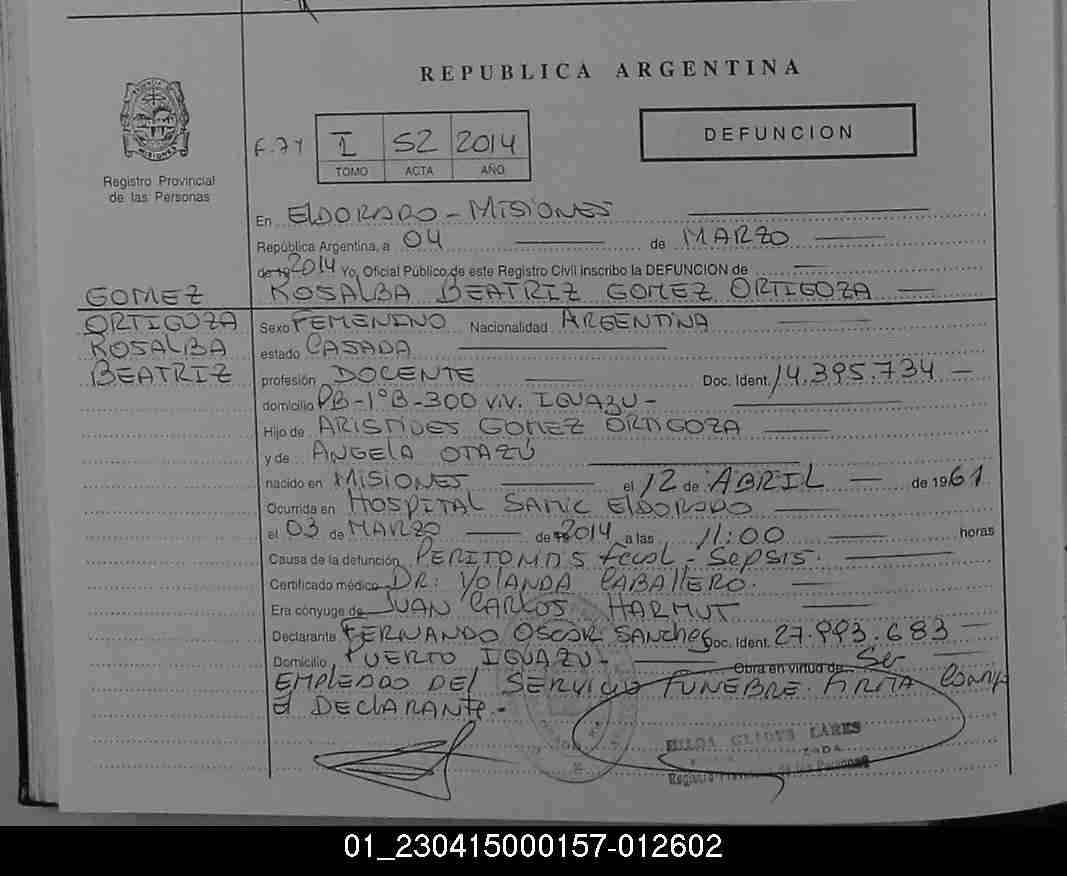 REPUBLICA ARGENTINA
DEFUNCION
F.71 I 52 2014
TOMO ACTA AÑO
Registro Provincial
de las Personas
En ELDORADO - MISIONES
República Argentina, a 04 de MARZO
de 19 2014 Yo, Oficial Público de este Registro Civil inscribo la DEFUNCION de
GOMEZ ROSALBA BEATRIZ GOMEZ ORTIGOZA
ORTIGOZA Sexo FEMENINO Nacionalidad ARGENTINA
ROSALBA estado CASADA
BEATRIZ profesión DOCENTE Doc. Ident. 14.395.734 -
domicilio PB-1°B-300 VIV. IGUAZU-
Hijo de ARISTIDES GOMEZ ORTIGOZA
y de ANGELA OTAZÚ
nacido en MISIONES el 12 de ABRIL de 1961
Ocurrida en HOSPITAL SAMIC ELDORADO
el 03 de MARZO de 19 2014 a las 11:00 horas
Causa de la defunción PERITONITIS fecal - Sepsis.
Certificado médico DR: YOLANDA CABALLERO.
Era cónyuge de JUAN CARLOS HARMUT
Declarante FERNANDO OSCAR SANCHEZ Doc. Ident. 27.993.683 -
Domicilio PUERTO IGUAZU- Obra en virtud de Ser
EMPLEADO DEL SERVICIO FUNEBRE. FIRMA
el DECLARANTE.-
HILDA GLADYS LARES
Registro Provincial de las Personas
01_230415000157-012602